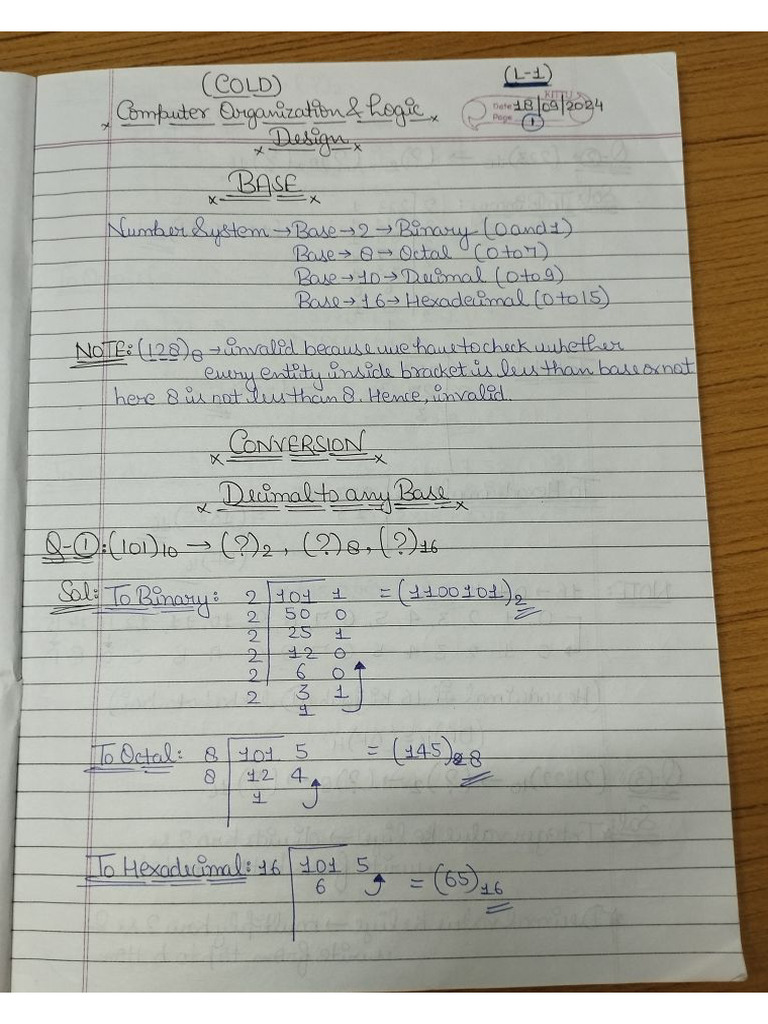 (COLD)
(L-1)
KITTU'S
Date 18/09/2024
Page 1
Computer Organization & Logic
Design
BASE
Number System → Base → 2 → Binary (0 and 1)
Base → 8 → Octal (0 to 7)
Base → 10 → Decimal (0 to 9)
Base → 16 → Hexadecimal (0 to 15)
NOTE: (128)8 → invalid because we have to check whether
every entity inside bracket is less than base or not
here 8 is not less than 8. Hence, invalid.
CONVERSION
Decimal to any Base
Q-1: (101)10 → (?)2, (?)8, (?)16
Sol: To Binary: 2 101 1 = (1100101)2
2 50 0
2 25 1
2 12 0
2 6 0
2 3 1
1
To Octal: 8 101 5 = (145)8
8 12 4
1
To Hexadecimal: 16 101 5
6 = (65)16